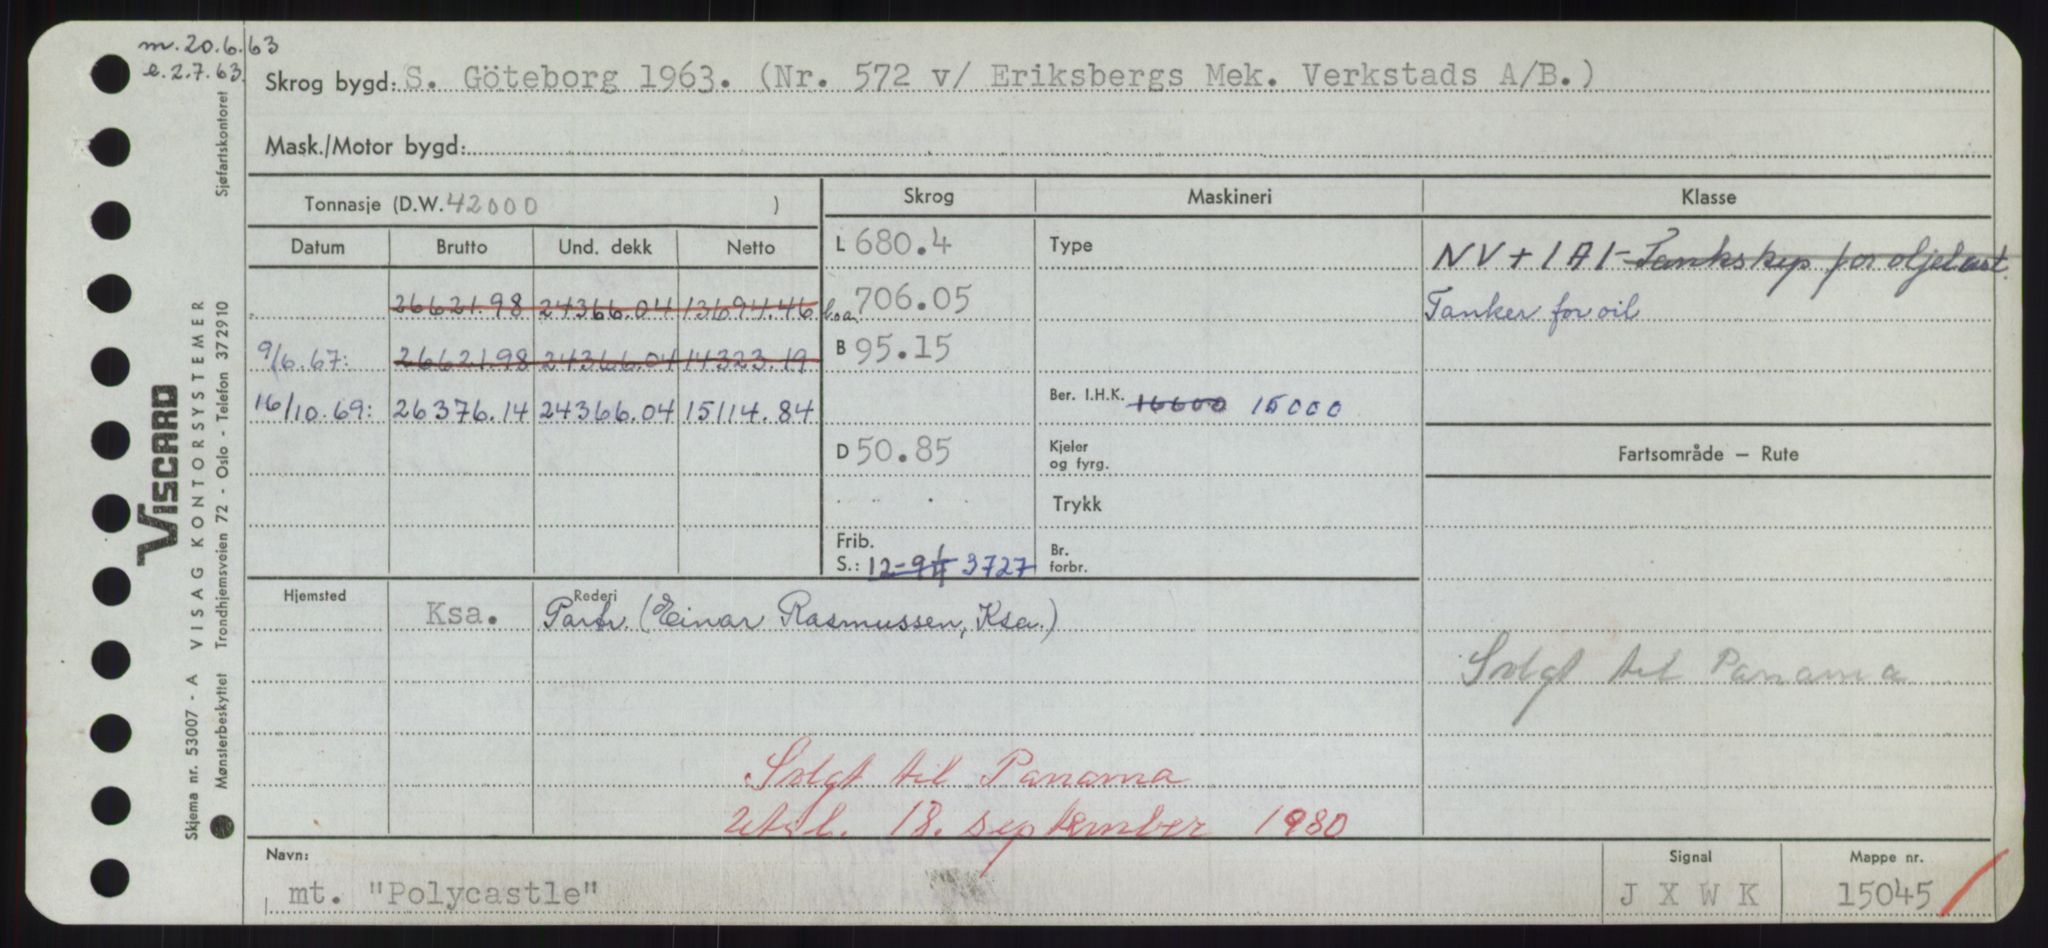 m. 20.6.63
e. 2.7.63.
Skrog bygd: S. Göteborg 1963. (Nr. 572 v/ Eriksbergs Mek. Verkstads A/B.)
Mask./Motor bygd:
Tonnasje (D.W. 42000 )
Skrog
Maskineri
Klasse
Datum Brutto Und. dekk Netto
26621.98 24366.04 13694.46
9/6.67: 26621.98 24366.04 14323.19
16/10.69: 26376.14 24366.04 15114.84
L 680.4
l.o.a. 706.05
B 95.15
D 50.85
Frib.
S.: 12-9 3727
Type
Ber. I.H.K. 16600 15000
Kjeler
og fyrg.
Trykk
Br.
forbr.
NV + 1A1 - Tankskip for oljelast.
Tanker for oil
Fartsområde – Rute
Solgt til Panama
Hjemsted Rederi
Ksa. Partr. (Einar Rasmussen, Ksa.)
Solgt til Panama
Utsl. 18. september 1980
Navn: Signal Mappe nr.
mt. "Polycastle" J X W K 15045
Skjema nr. 53007 - A VISAG KONTORSYSTEMER
VISCARD
Mønsterbeskyttet Trondhjemsveien 72 - Oslo - Telefon 372910 Sjøfartskontoret